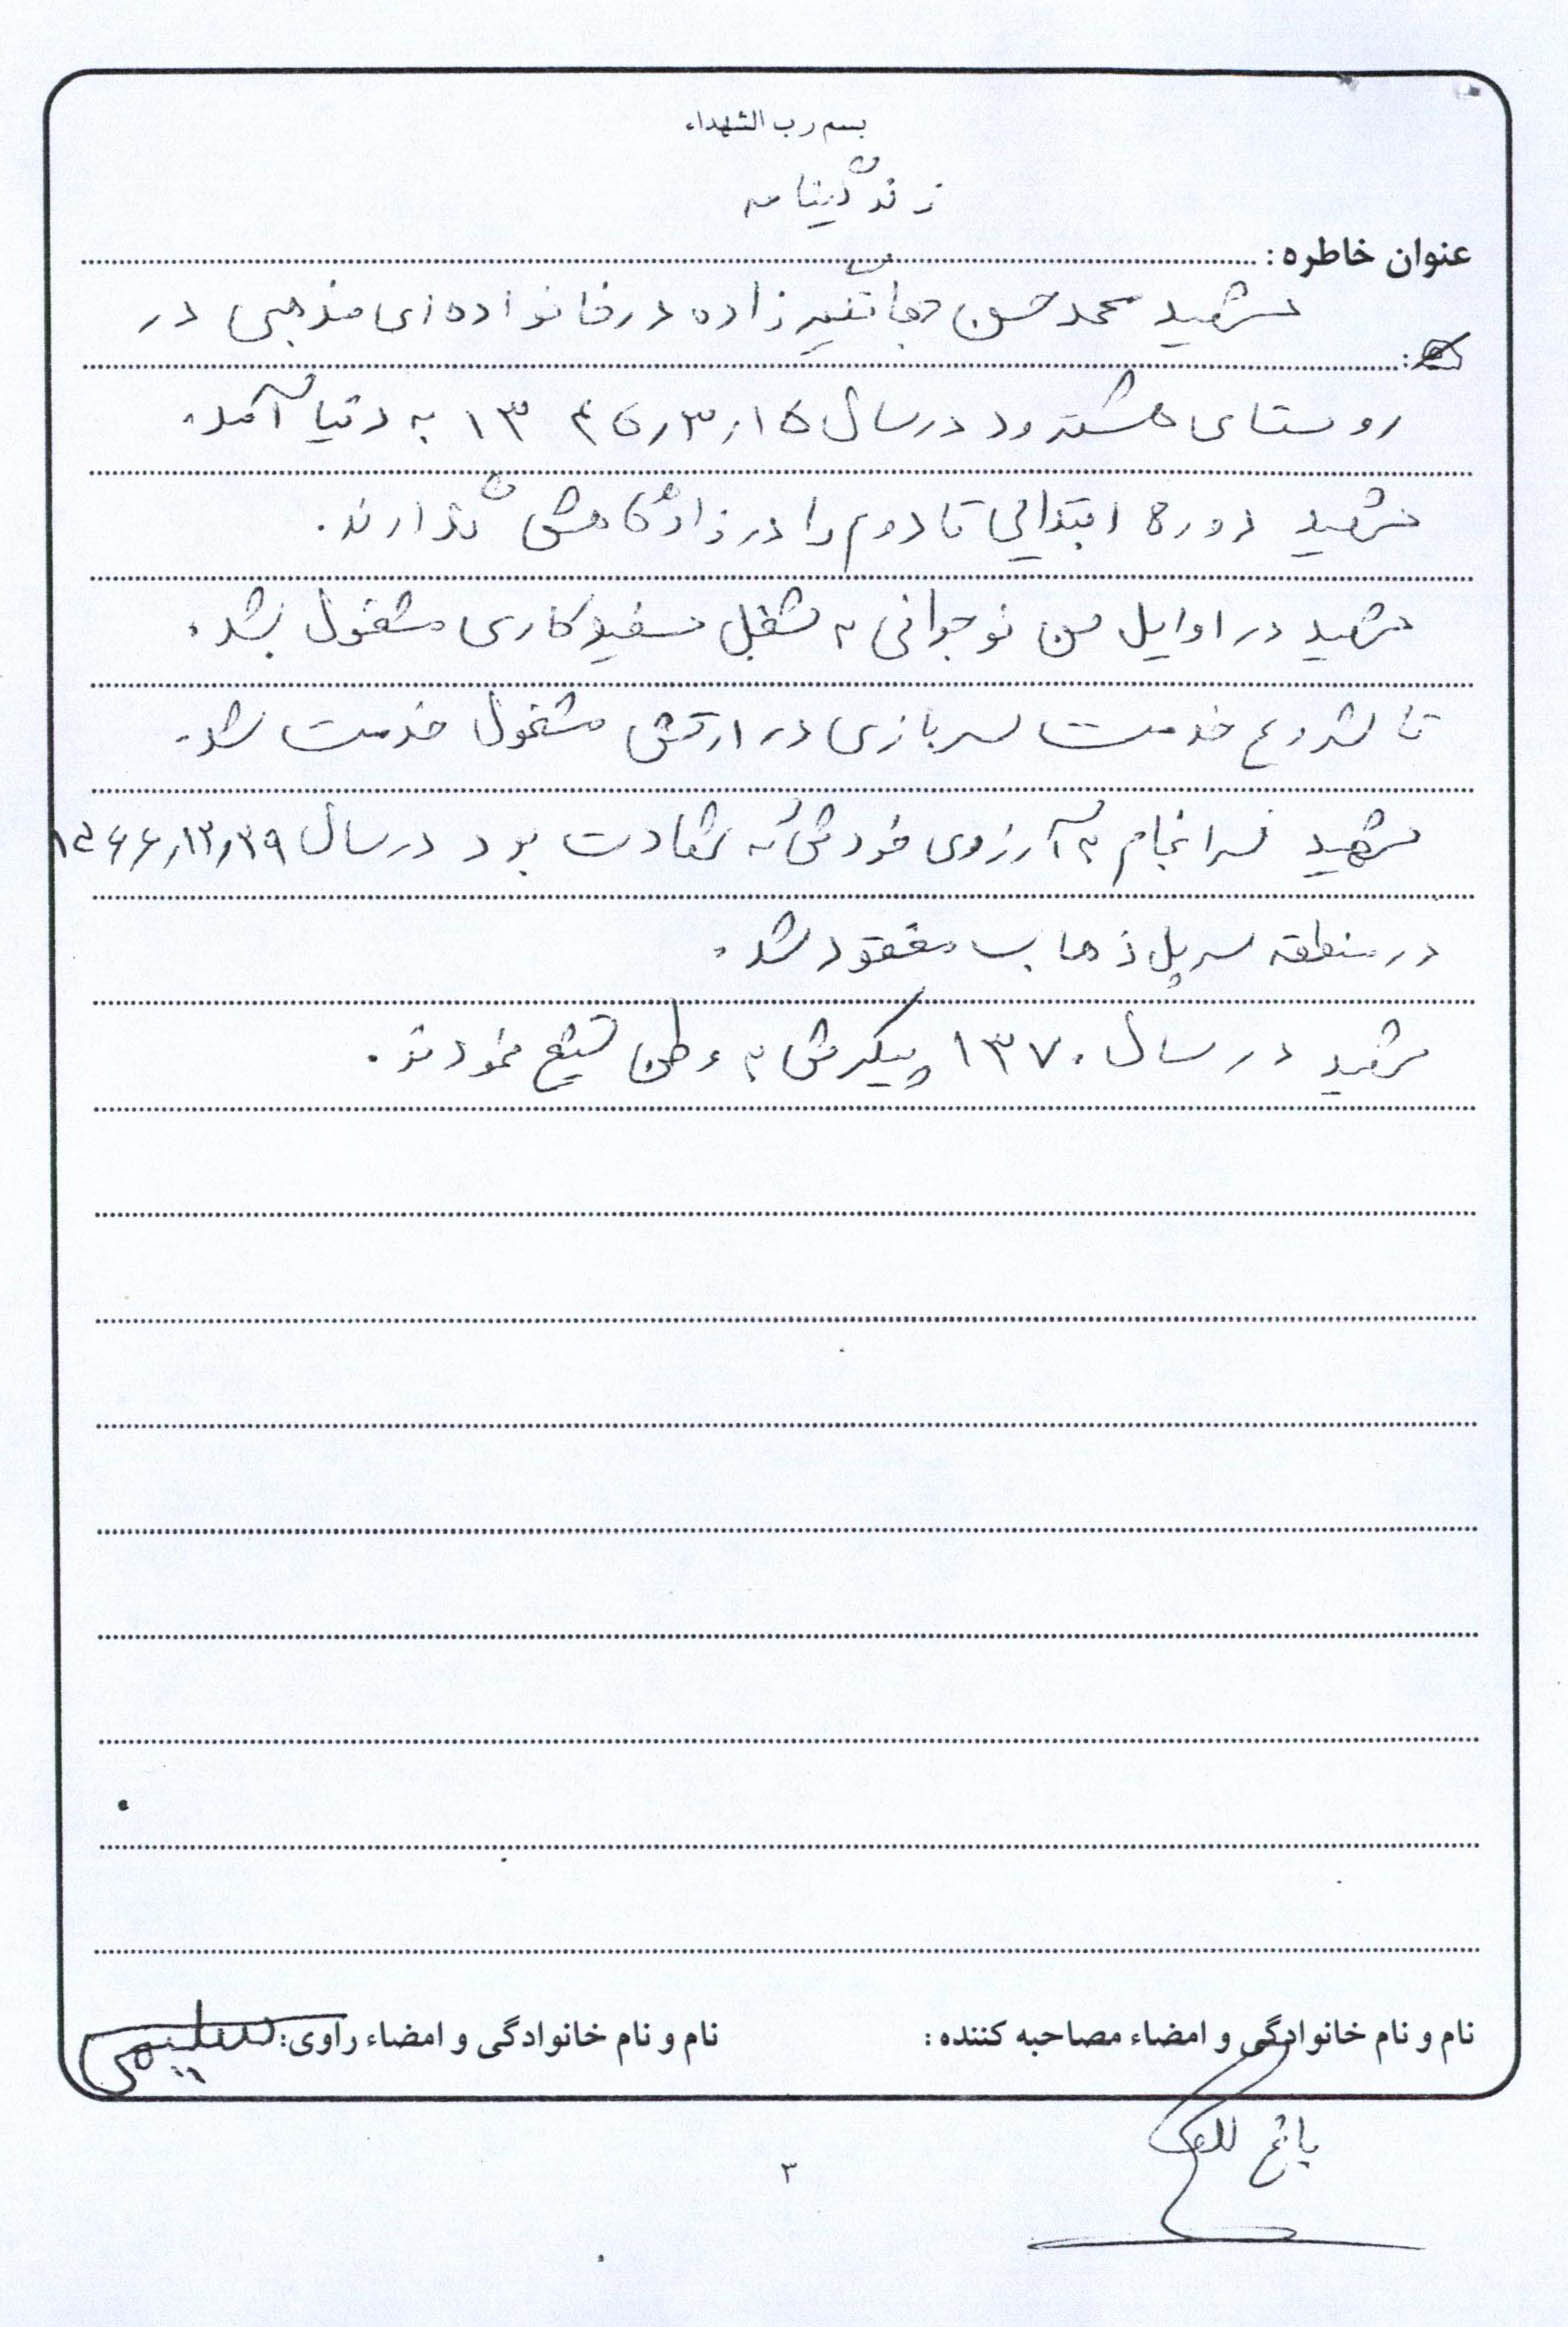 بسم رب الشهداء
زندگینامه
عنوان خاطره:
شهید محمد حسن جهانگیرزاده در خانواده ای مذهبی در
روستای هشترود در سال ۱۳۴۵٫۳٫۱۵ به دنیا آمد.
شهید دوره ابتدایی تا دوم را در زادگاهش گذارند.
شهید در اوایل سن نوجوانی به شغل سفیدکاری مشغول شد.
تا شروع خدمت سربازی در ارتش مشغول خدمت شد.
شهید سرانجام به آرزوی خودش که شهادت بود در سال ۱۳۶۶٫۱۲٫۲۹
در منطقه سرپل ذهاب مفقود شد.
شهید در سال ۱۳۷۰ پیکرش به وطن تشیع نمودند.
نام و نام خانوادگی و امضاء مصاحبه کننده:
نام و نام خانوادگی و امضاء راوی: سلیمی
۳